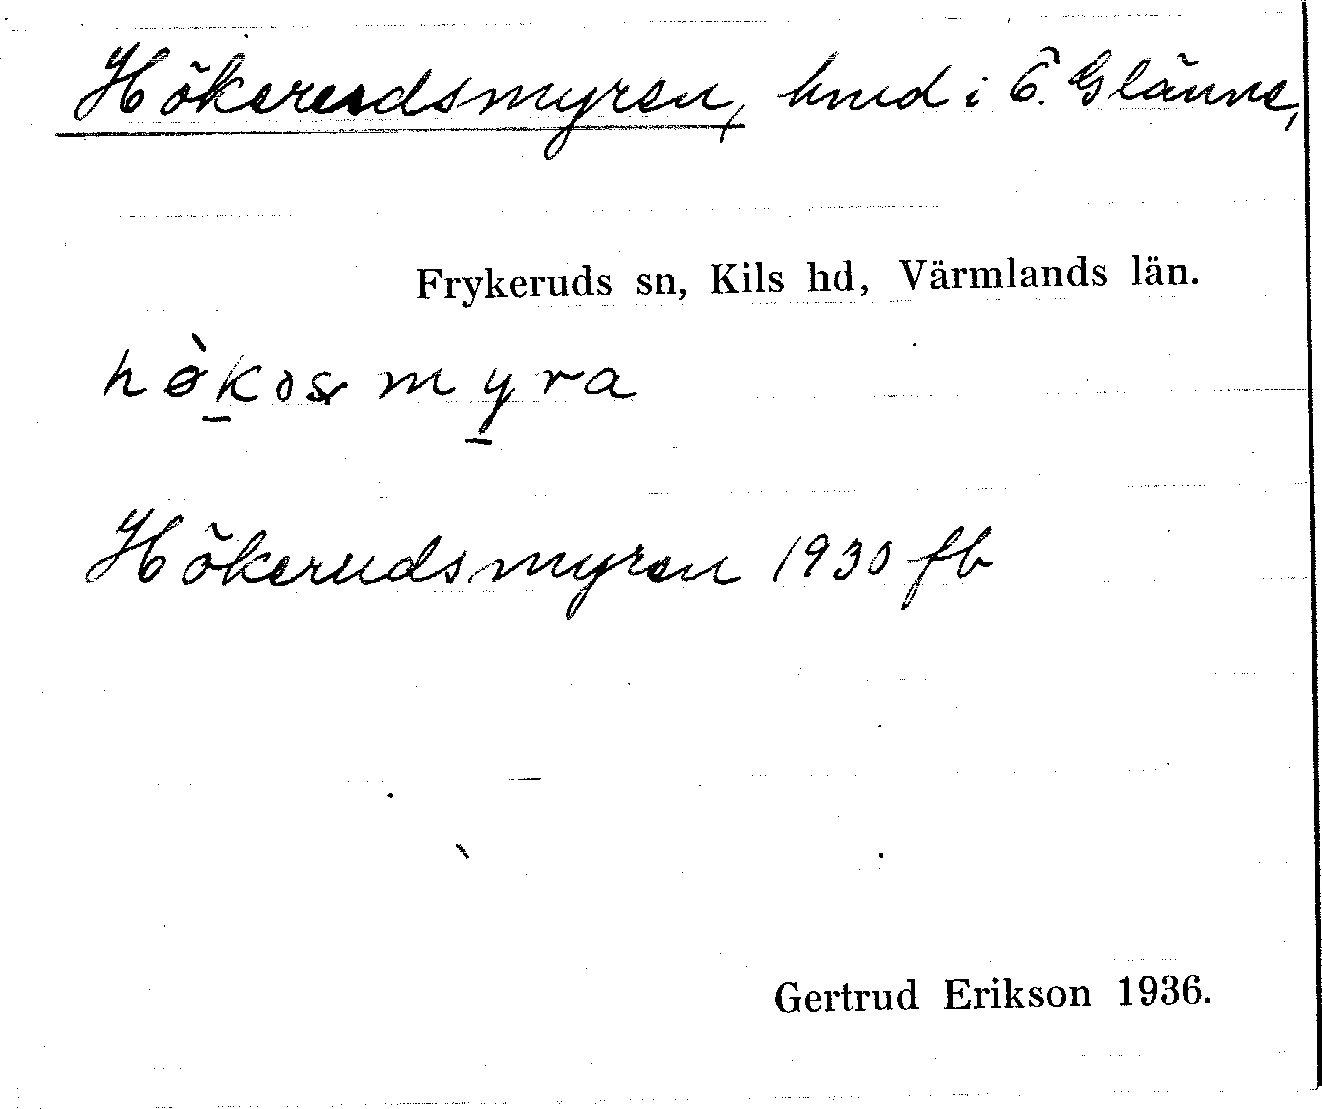 Hökerudsmyren, hmd i Ö. Glänne,
Frykeruds sn, Kils hd, Värmlands län.
hø̀kos myra
Hökerudsmyren 1930 fb
Gertrud Erikson 1936.